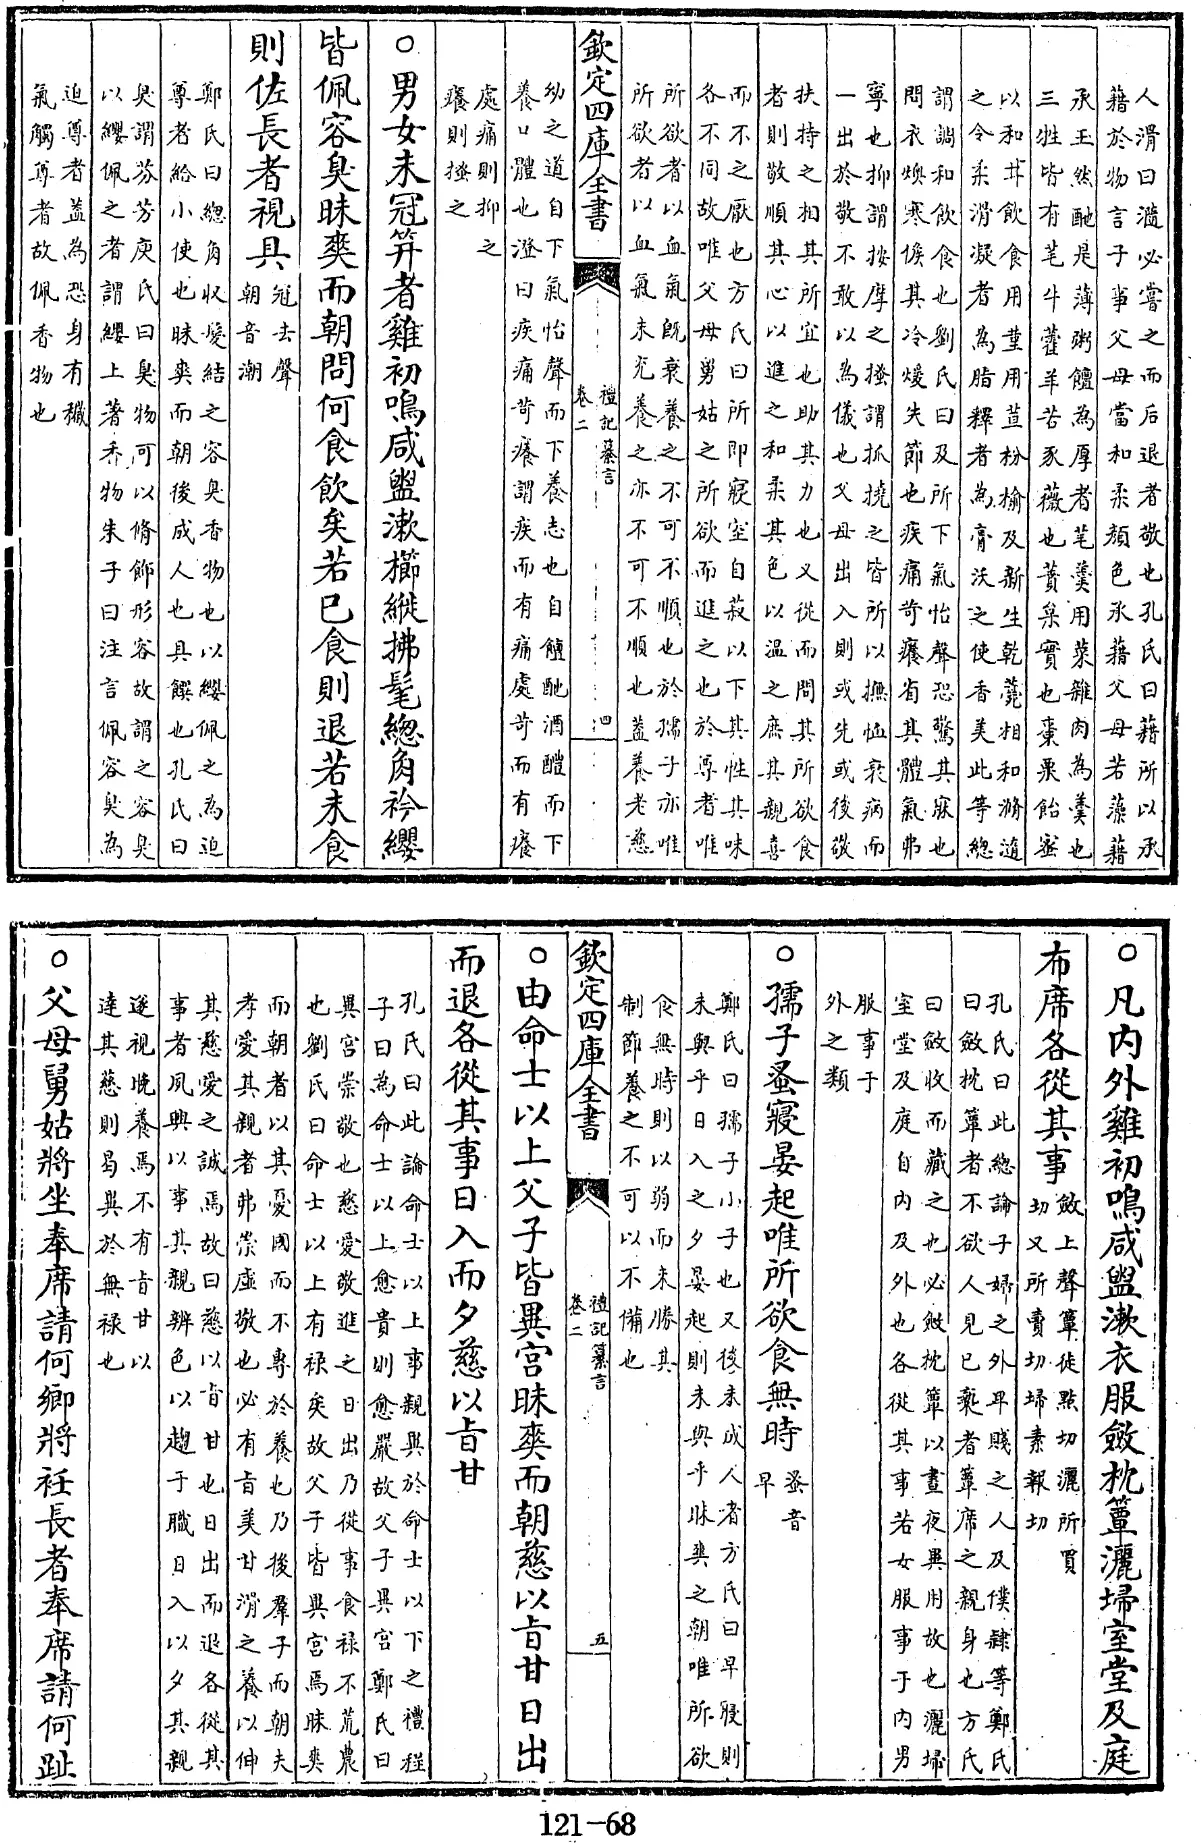 人滑曰瀡必嘗之而后退者敬也孔氏曰藉所以承
藉於物言子事父母當和柔顏色承藉父母若藻藉
承玉然酏是薄粥饘為厚者芼羹用菜雜肉為羹也
三牲皆有芼牛藿羊苦豕薇也蕡枲實也棗栗飴蜜
以和甘飲食用堇用荁枌榆及新生乾薧相和滫瀡
之令柔滑凝者為脂釋者為膏沃之使香美此等總
謂調和飲食也劉氏曰及所下氣怡聲恐驚其寐也
問衣燠寒候其冷煖失節也疾痛苛癢省其體氣弗
寧也抑謂按摩之搔謂抓撓之皆所以撫恤衰病而
一出於敬不敢以為儀也父母出入則或先或後敬
扶持之相其所宜也助其力也又從而問其所欲食
者則敬順其心以進之和柔其色以温之庶其親喜
而不之厭也方氏曰所即寢室自菽以下其性其味
各不同故唯父母舅姑之所欲而進之也於尊者唯
所欲者以血氣既衰養之不可不順也於孺子亦唯
所欲者以血氣未充養之亦不可不順也蓋養老慈
欽定四庫全書
禮記纂言
卷二
四
幼之道自下氣怡聲而下養志也自饘酏酒醴而下
養口體也澄曰疾痛苛癢謂疾而有痛處苛而有癢
處痛則抑之
癢則搔之
○男女未冠笄者雞初鳴咸盥漱櫛縰拂髦緫角衿纓
皆佩容臭昧爽而朝問何食飲矣若已食則退若未食
則佐長者視具
冠去聲
朝音潮
鄭氏曰緫角收髮結之容臭香物也以纓佩之為迫
尊者給小使也昧爽而朝後成人也具饌也孔氏曰
臭謂芬芳庾氏曰臭物可以脩飾形容故謂之容臭
以纓佩之者謂纓上著香物朱子曰注言佩容臭為
迫尊者蓋為恐身有穢
氣觸尊者故佩香物也
○凡内外雞初鳴咸盥漱衣服斂枕簟灑埽室堂及庭
布席各從其事
斂上聲簟徒點切灑所買
切又所賣切埽素報切
孔氏曰此總論子婦之外卑賤之人及僕隸等鄭氏
曰斂枕簟者不欲人見已褻者簟席之親身也方氏
曰斂收而藏之也必斂枕簟以晝夜異用故也灑埽
室堂及庭自内及外也各從其事若女服事于内男
服事于
外之類
○孺子蚤寢晏起唯所欲食無時
蚤音
早
鄭氏曰孺子小子也又後未成人者方氏曰早寢則
未與乎日入之夕晏起則未與乎昧爽之朝唯所欲
食無時則以弱而未勝其
制節養之不可以不備也
欽定四庫全書
禮記纂言
卷二
五
○由命士以上父子皆異宮昧爽而朝慈以旨甘日出
而退各從其事日入而夕慈以旨甘
孔氏曰此論命士以上事親異於命士以下之禮程
子曰為命士以上愈貴則愈嚴故父子異宮鄭氏曰
異宮崇敬也慈愛敬進之日出乃從事食禄不荒農
也劉氏曰命士以上有禄矣故父子皆異宮焉昧爽
而朝者以其憂國而不專於養也乃後羣子而朝夫
孝愛其親者弗崇虚敬也必有旨美甘滑之養以伸
其慈愛之誠焉故曰慈以旨甘也日出而退各從其
事者夙興以事其親辨色以趨于職日入以夕其親
遂視晚養焉不有旨甘以
達其慈則曷異於無禄也
○父母舅姑將坐奉席請何鄉將衽長者奉席請何趾
121-68